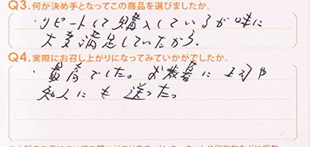 Q3.何が決め手となってこの商品を選びましたか。
・リピートして購入しているが味に
大変満足していたから。
Q4.実際にお召し上がりになってみていかがでしたか。
・最高でした。お歳暮に上司や
知人にも送った。